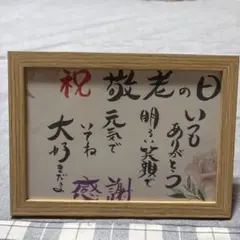 祝 敬老の日
いつも
ありがとう
明るい笑顔で
元気で
いてね
大好きだよ
感謝